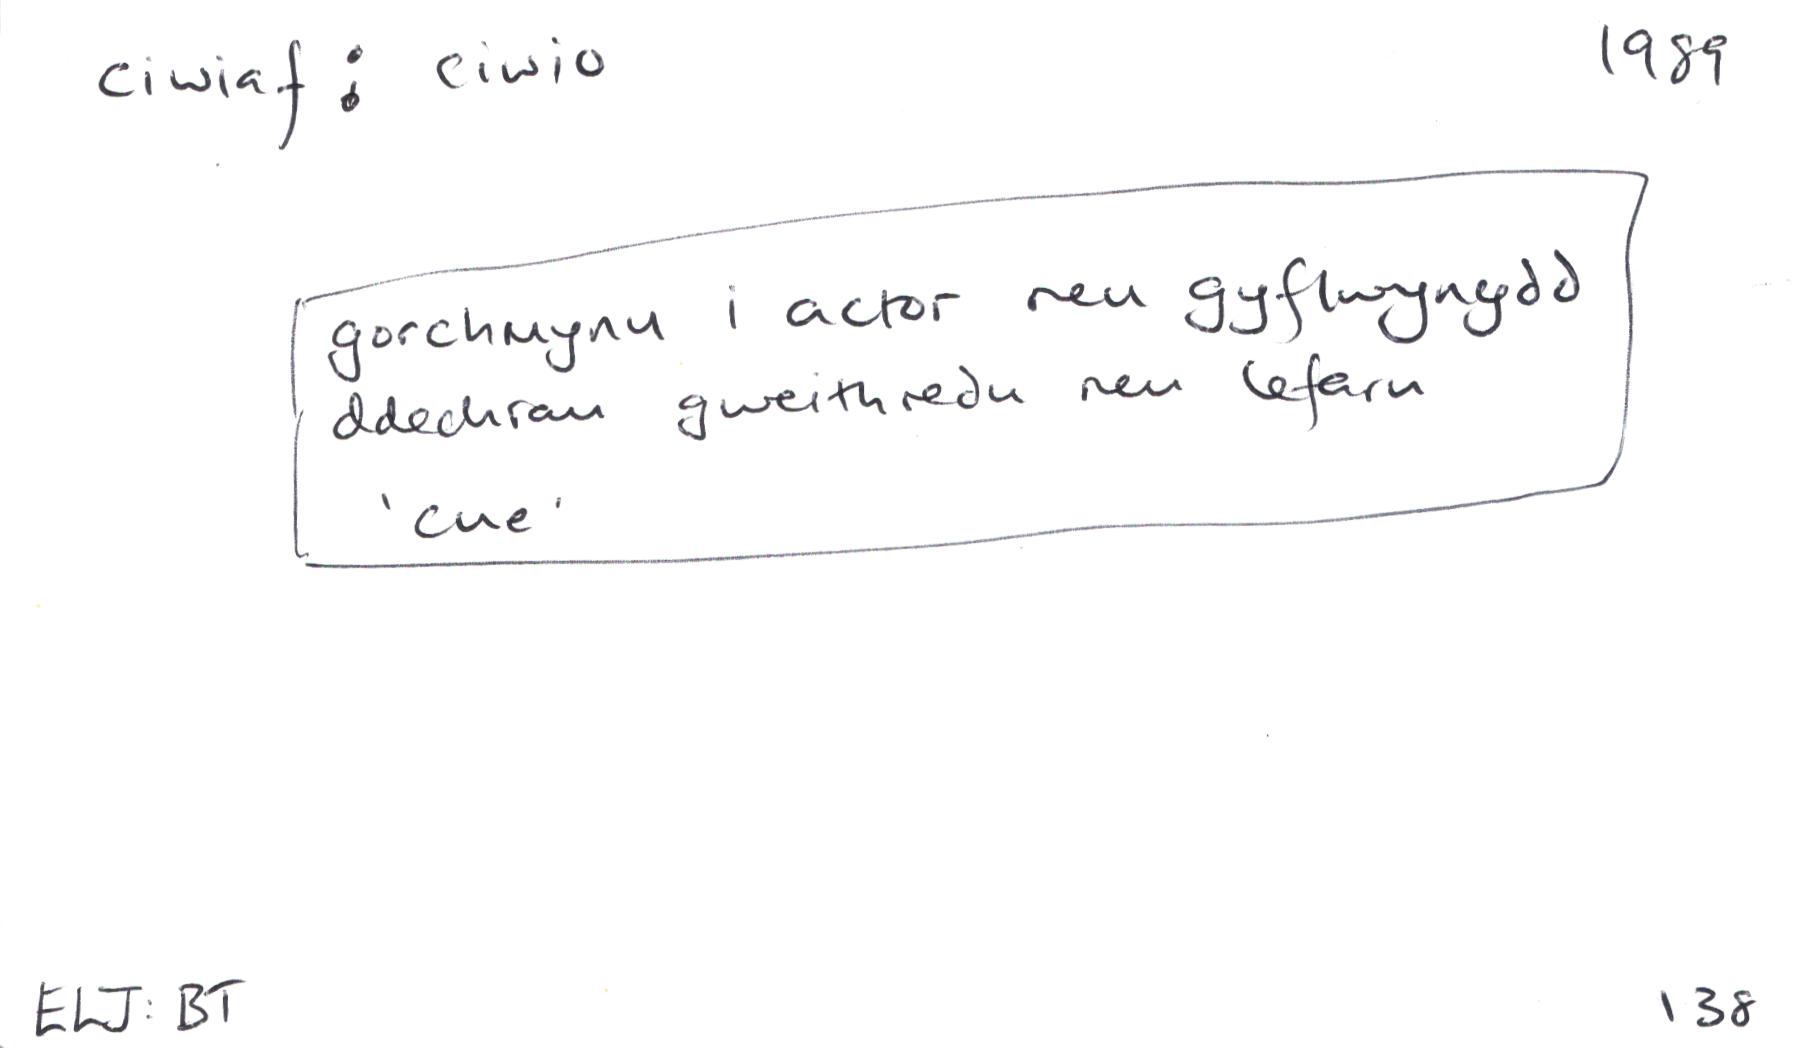 ciwiaf : ciwio 1989
gorchmynu i actor neu gyflwynydd
ddechrau gweithredu neu lefaru
'cue'
ELJ: BT 138